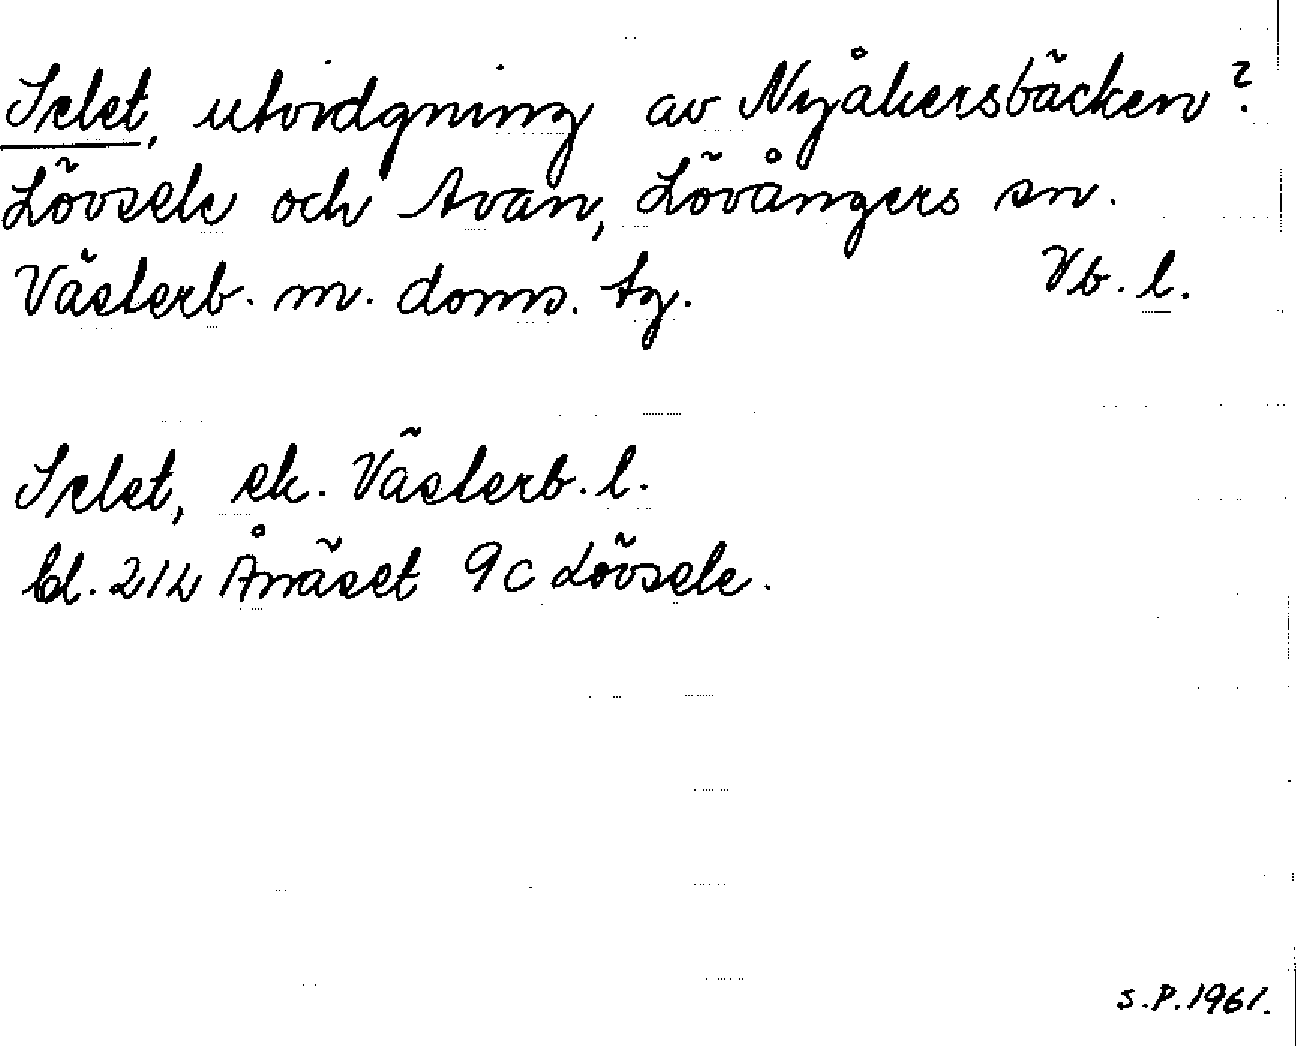 Selet, utvidgning av Nyåkersbäcken?
Lövsele och Avan, Lövångers sn.
Västerb. m. doms. tg. Vb. l.
Selet, ek. Västerb. l.
bl. 21L Ånäset 9c Lövsele.
S.P. 1961.